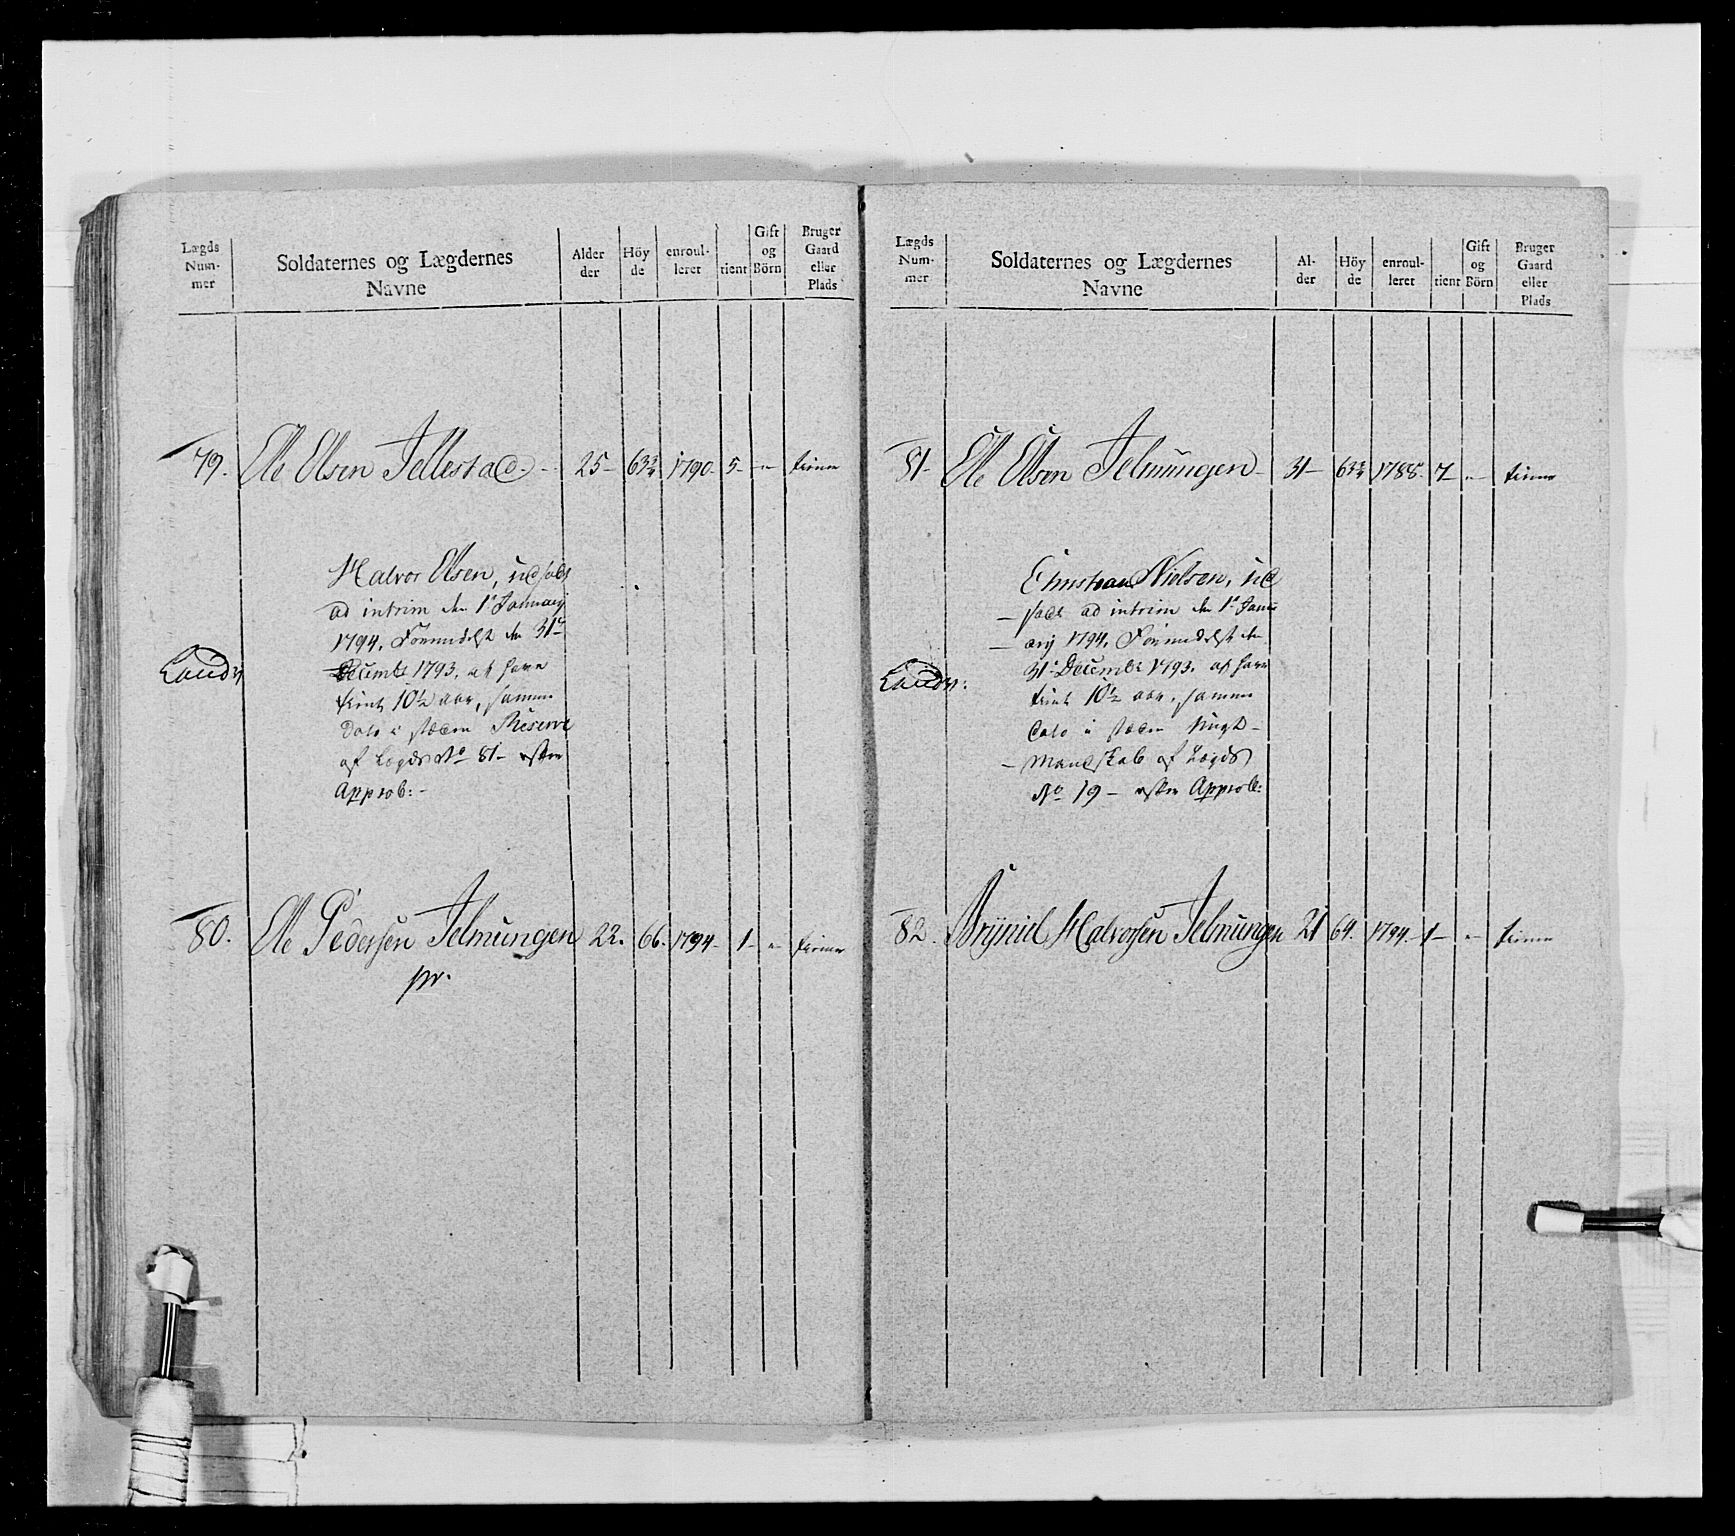 Lægds Num- mer
Soldaternes og Lægdernes Navne
Alder der
Höy de
enroul- leret
tient
Gift og Börn
Bruger Gaard eller Plads
79. Ole Olsen Jellestad 25 - 63 3/4 1790. 5 - " tiener
Halvor Olsen, udsadt
ad intrim den 1te January
1794, Formedelst den 31te
Landv: Decembr 1793, at have
tient 10 1/2 aar, samme
Dato i stæden Reserve
af Lægds No 81 - efter
Approb: -
80. Ole Pedersen Jelmungen 22. 66. 1794. 1 - " tiener
pr.
Lægds Num- mer
Soldaternes og Lægdernes Navne
Al- der
Höy de
enroul- leret
tient
Gift og Börn
Bruger Gaard eller Plads
81 - Ole Olsen Jelmungen - 31 - 63 3/4 1788. 7 - " tiener
Christian Nielsen, ud
- sadt ad intrim den 1te Janu
- ary 1794, Formedelst den
Landv: 31te Decembr 1793, at have
tient 10 1/2 aar, samme
Dato i stæden
- Mandskab af Lægds
No 19 - efter Approb:
82. Brÿniel Halvorsen Jelmungen 21 64. 1794. 1 - " tiener